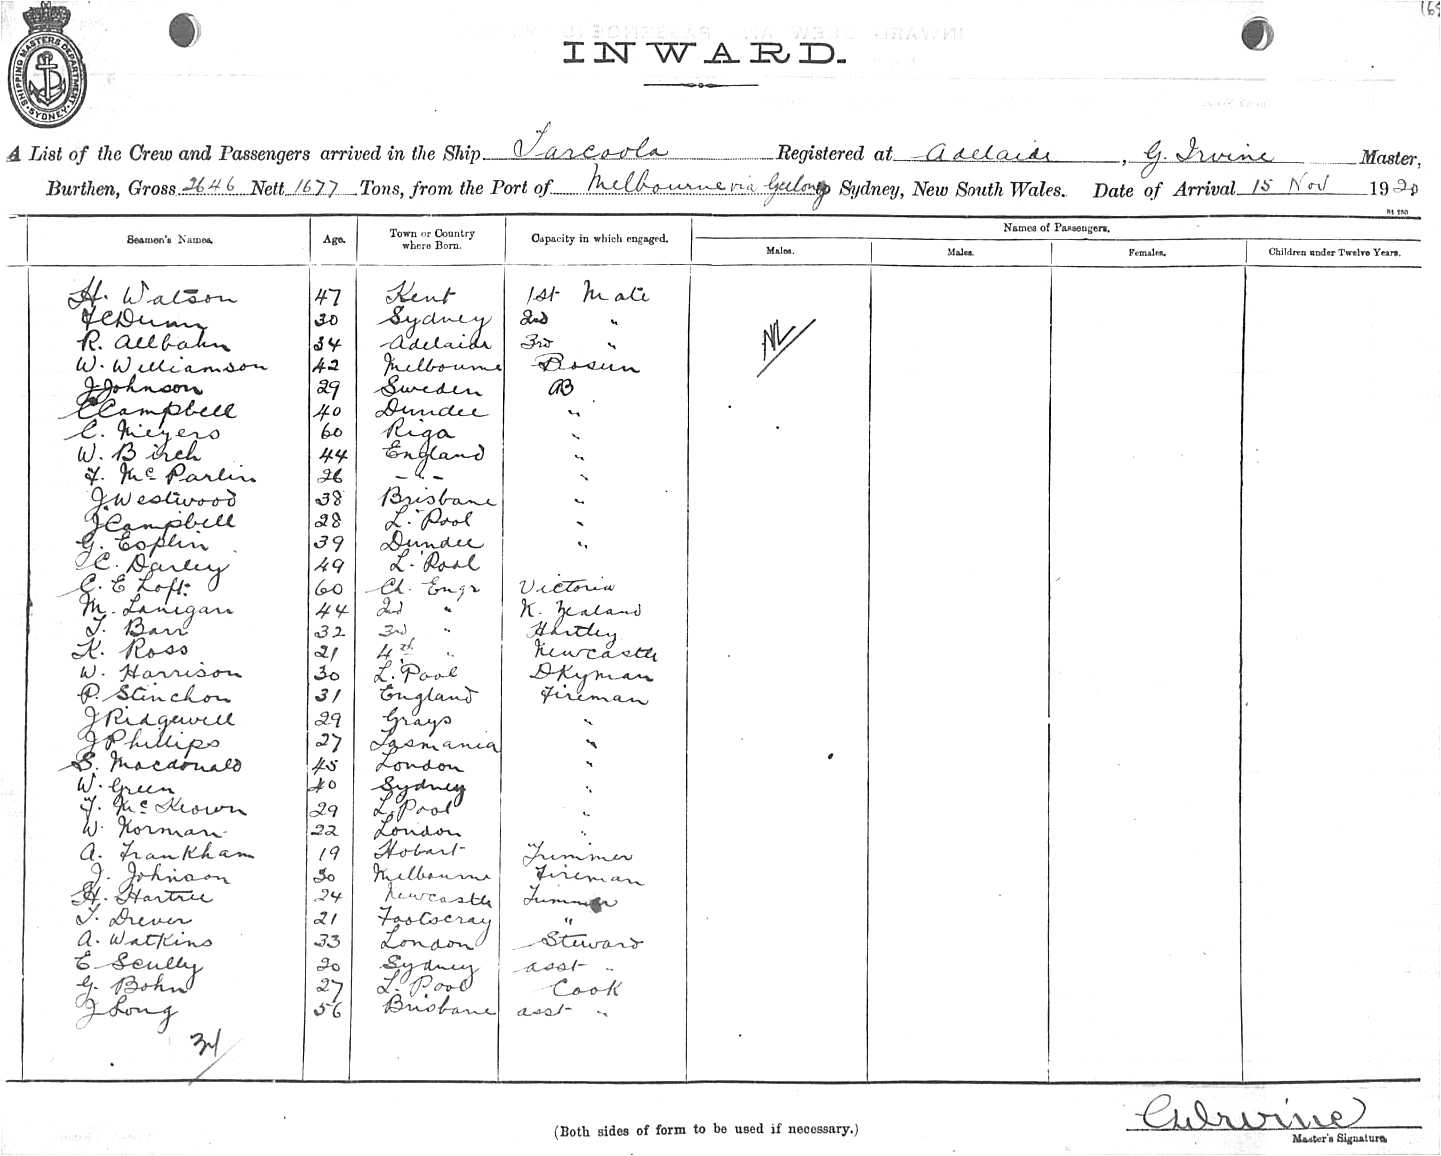 169
SHIPPING MASTERS DEPARTMENT SYDNEY
INWARD.
A List of the Crew and Passengers arrived in the Ship Tarcoola Registered at Adelaide, G. Irvine Master,
Burthen, Gross 2646 Nett 1677 Tons, from the Port of Melbourne via Geelong Sydney, New South Wales. Date of Arrival 15 Nov 1920
Seamen's Names. Age. Town or Country where Born. Capacity in which engaged. Names of Passengers.
Males. Males. Females. Children under Twelve Years.
H. Watson 47 Kent 1st Mate
30 Sydney 2nd "
R. Allbahn 34 Adelaide 3rd "
W. Williamson 42 Melbourne Bosun
J Johnson 29 Sweden AB
C Campbell 40 Dundee "
C. Meyers 60 Riga "
W. Birch 44 England "
F. McParlin 26 -"- "
J. Westwood 38 Brisbane "
J Campbell 28 L. Pool "
G. Esplin 39 Dundee "
C. Darley 49 L. Pool
C. E Loft 60 Ch. Engr Victoria
M. Lanigan 44 2nd " N. Zealand
T. Barr 32 3rd " Hartley
K. Ross 21 4th " Newcastle
W. Harrison 30 L. Pool Dkyman
P. Stinchon 31 England Fireman
J Ridgewell 29 Grays "
J Phillips 27 Tasmania "
S. Macdonald 45 London "
W. Green 40 Sydney "
F. McKeown 29 L. Pool "
W. Norman 22 London "
A. Frankham 19 Hobart Trimmer
J. Johnson 30 Melbourne Fireman
H. Hartree 24 Newcastle Trimmer
T. Drever 21 Footscray "
A. Watkins 33 London Steward
E Scully 20 Sydney asst "
G. Bohn 27 L. Pool Cook
J Long 56 Brisbane asst "
34
(Both sides of form to be used if necessary.)
G Irvine
Master's Signature.